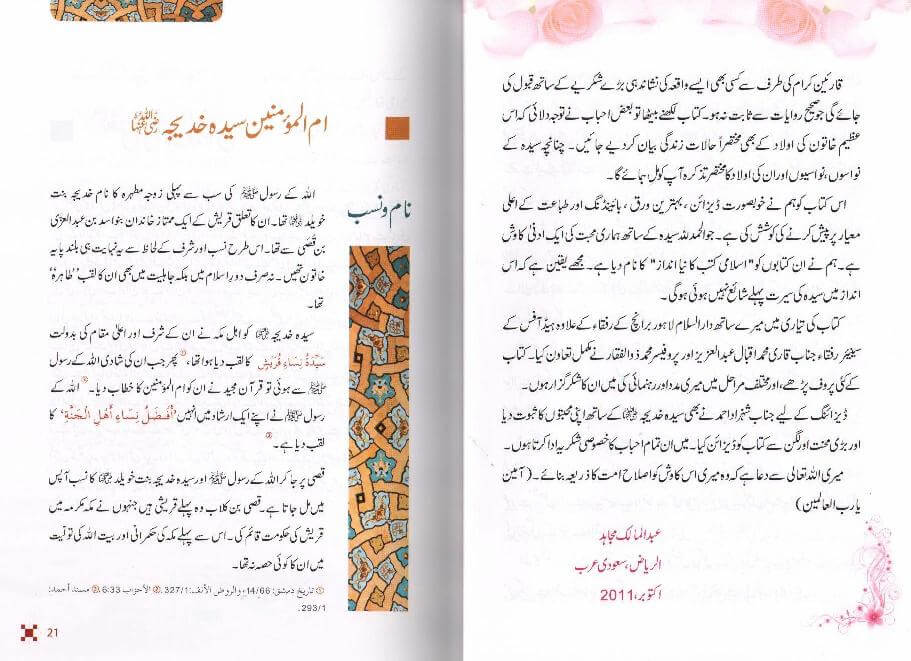 قارئین کرام کی طرف سے کسی بھی ایسے واقعہ کی نشاندہی بڑے شکریے کے ساتھ قبول کی
جائے گی جو صحیح روایات سے ثابت نہ ہو۔ کتاب لکھنے بیٹھا تو بعض احباب نے توجہ دلائی کہ اس
عظیم خاتون کی اولاد کے بھی مختصراً حالات زندگی بیان کر دیے جائیں۔ چنانچہ سیدہ کے
نواسوں، نواسیوں اور ان کی اولاد کا مختصر تذکرہ آپ کو مل جائے گا۔
اس کتاب کو ہم نے خوبصورت ڈیزائن، بہترین ورق، بائینڈنگ اور طباعت کے اعلی
معیار پر پیش کرنے کی کوشش کی ہے۔ جو الحمد للہ سیدہ کے ساتھ ہماری محبت کی ایک ادنی کاوش
ہے۔ ہم نے ان کتابوں کو "اسلامی کتب کا نیا انداز" کا نام دیا ہے۔ مجھے یقین ہے کہ اس
انداز میں سیدہ کی سیرت پہلے شائع نہیں ہوئی ہوگی۔
کتاب کی تیاری میں میرے ساتھ دارالسلام لاہور برانچ کے رفقاء کے علاوہ ہیڈ آفس کے
سینیئر رفقاء جناب قاری محمد اقبال عبدالعزیز اور پروفیسر محمد ذوالفقار نے مکمل تعاون کیا۔ کتاب
کے کئی پروف پڑھے، اور مختلف مراحل میں میری مدد اور رہنمائی کی میں ان کا شکر گزار ہوں۔
ڈیزائننگ کے لیے جناب شہزاد احمد نے بھی سیدہ خدیجہ رضی اللہ عنہا کے ساتھ اپنی محبتوں کا ثبوت دیا
اور بڑی محنت اور لگن سے کتاب کو ڈیزائن کیا۔ میں ان تمام احباب کا خصوصی شکریہ ادا کرتا ہوں۔
میری اللہ تعالی سے دعا ہے کہ وہ میری اس کاوش کو اصلاح امت کا ذریعہ بنائے۔ (آمین
یا رب العالمین)
عبدالمالک مجاہد
الریاض، سعودی عرب
اکتوبر، 2011
ام المؤمنین سیدہ خدیجہ رضی اللہ عنہا
نام و نسب
اللہ کے رسول ﷺ کی سب سے پہلی زوجہ مطہرہ کا نام خدیجہ بنت
خویلد رضی اللہ عنہا تھا۔ ان کا تعلق قریش کے ایک ممتاز خاندان بنو اسد بن عبدالعزّی
بن قصَی سے تھا۔ اس طرح نسب اور شرف کے لحاظ سے یہ نہایت ہی بلند پایہ
خاتون تھیں۔ نہ صرف دورِ اسلام میں بلکہ جاہلیت میں بھی ان کا لقب ''طاہرہ''
تھا۔
سیدہ خدیجہ رضی اللہ عنہا کو اہل مکہ نے ان کے شرف اور اعلیٰ مقام کی بدولت
سَیِّدَةُ نِسَاءِ قُرَیْشٍ کا لقب دیا ہوا تھا،① پھر جب ان کی شادی اللہ کے رسول
ﷺ سے ہوئی تو قرآن مجید نے ان کو ام المؤمنین کا خطاب دیا۔② اللہ کے
رسول ﷺ نے اپنے ایک ارشاد میں انہیں ''أَفْضَلُ نِسَاءِ أَهْلِ الْجَنَّةِ'' کا
لقب دیا ہے۔③
قصی پر جا کر اللہ کے رسول ﷺ اور سیدہ خدیجہ بنت خویلد رضی اللہ عنہا کا نسب آپس
میں مل جاتا ہے۔ قصی بن کلاب وہ پہلے قریشی ہیں جنہوں نے مکہ مکرمہ میں
قریش کی حکومت قائم کی۔ اس سے پہلے مکہ کی حکمرانی اور بیت اللہ کی تولیت
میں ان کا کوئی حصہ نہ تھا۔
① تاریخ دمشق: 14/66، والروض الأنف: 327/1. ② الأحزاب 6:33. ③ مسند أحمد:
293/1.
21